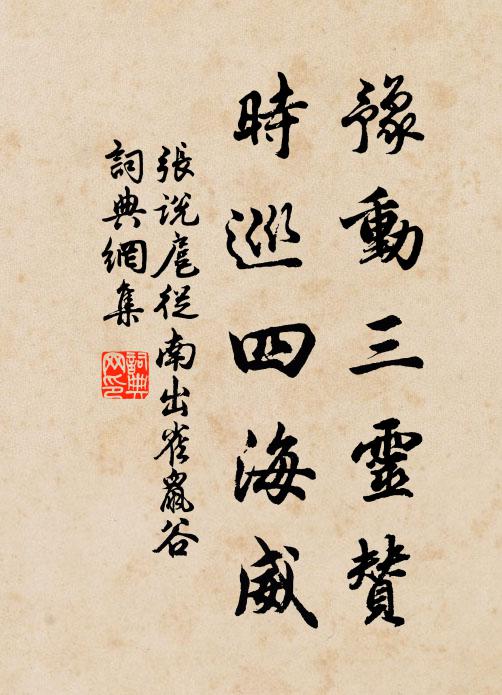 豫動三靈贊
時巡四海威
張説扈從南出雀鼠谷
詞典網集
詞典網印